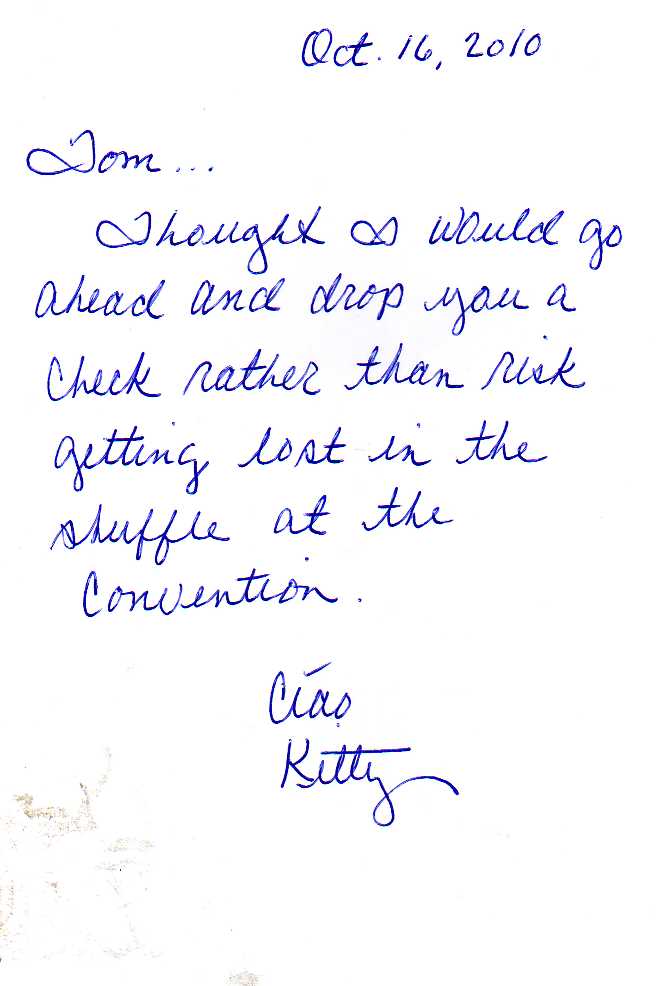 Oct. 16, 2010
Tom...
Thought I would go
ahead and drop you a
check rather than risk
getting lost in the
shuffle at the
convention.
Ciao
Kitty